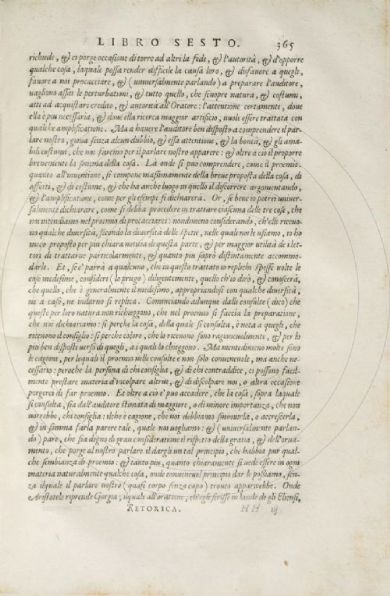 LIBRO SESTO. 365
richiede, & ci porge occasione di torre ad altri la fede, & l'autorità, & d'opporre
qualche cosa, laquale possa render difficile la causa loro, & disfavore a quegli,
favore a noi procacciare, & (universalmente parlando) a preparare l'auditore
vagliono assai le perturbationi, & tutto quello, che scuopre natura, & costumi,
atti ad acquistare credito, & autorità all'Oratore: l'attentione certamente, dove
ella è piu necessaria, & dove ella ricerca maggior artificio, vuole essere trattata con
qualche amplificatione. Ma a havere l'auditore ben disposto a comprendere il par-
lare nostro, giova senza alcun dubbio, & essa attentione, & la bontà, & gli ama-
bili costumi, che noi facciam per il parlare nostro apparere: & oltre a ciò il proporre
brevemente la somma della cosa. Là onde si può comprendere, come il proemio
quanto all'inventione, si compone massimamente della breve proposta della cosa, di
affetti, & di costume, & che ha anche luogo in quello il discorrere argomentando,
& l'amplificatione, come per gli esempi si dichiarerà. Or, se bene io poteva univer-
salmente dichiarare, come si debba procedere in trattare ciascuna delle tre cose, che
noi intendiamo nel proemio di procacciarci: nondimeno considerando, ch'elle ricevo-
no qualche diversità, secondo la diversità delle spetie, nelle quali noi le usiamo, io ho
meco proposto per piu chiara notitia di questa parte, & per maggior utilità de i let-
tori di trattarne particolarmente, & quanto piu saprò distintamente accommo-
darle. Et, se e' parrà a qualcuno, che in questo trattato io replichi spesse volte le
cose medesime, consideri (lo prego) diligentemente, quello ch'io dirò, & conoscerà,
che quello, che è generalmente il medesimo, appropriandosi con qualche diversità,
nè a caso, nè indarno si replica. Cominciando adunque dalle consulte (dico) che
queste per loro natura non richieggono, che nel proemio si faccia la preparatione,
che noi dichiarammo: sì perche la cosa, della quale si consulta, è nota a quegli, che
ricevono il consiglio: sì perche coloro, che lo ricevono sono ragionevolmente, & per lo
piu ben disposti verso di quegli, a i quali lo chieggono. Ma nientedimeno molte sono
le cagioni, per lequali il proemio nelle consulte è non solo convenevole, ma anche ne-
cessario: peroche la persona di chi consiglia, & di chi contraddice, ci possono facil-
mente prestare materia d'incolpare altrui, & di discolpare noi, o altra occasione
porgerci di far proemio. Et oltre a ciò e' può accadere, che la cosa, sopra laquale
si consulta, sia dall'auditore stimata di maggiore, o di minore importanza, che non
vorrebbe, chi consiglia: il che è cagione, che noi dobbiamo sminuirla, o accrescerla,
& in somma farla parere tale, quale noi vogliamo: & (universalmente parlan-
do) pare, che sia degno di gran consideratione il rispetto della gratia, & dell'orna-
mento, che porge al nostro parlare il dargli un tal principio, che habbia pur qual-
che sembianza di proemio, & tanto piu, quanto chiaramente si vede essere in ogni
materia naturalmente qualche cosa, onde convenirsi principio dar le possiamo, sen-
za il quale il parlare nostro (quasi corpo senza capo) tronco apparirebbe. Onde
Aristotele riprende Gorgia; il quale all'oratione, ch'egli scrisse in laude de gli Eliensi,
RETORICA. HH iij